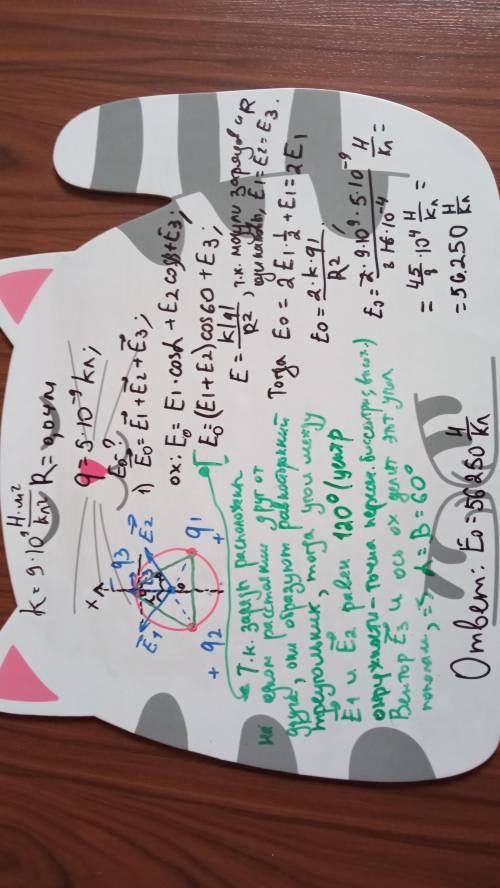 k = 9·10⁹ Н·м²/кл² R = 0,04м
q = 5·10⁻⁹ кл;
E₀ - ?
1) E⃗₀ = E⃗₁ + E⃗₂ + E⃗₃;
ox: E₀ = E₁·cosα + E₂ cosβ + E₃;
E₀ = (E₁ + E₂) cos60 + E₃;
E = k|q|/R², т.к. модули зарядов и R
одинаковы, E₁ = E₂ = E₃.
Тогда E₀ = 2E₁·1/2 + E₁ = 2E₁
E₀ = 2·k·q₁/R²;
E₀ = 2·9·10⁹·5·10⁻⁹/16·10⁻⁴ Н/кл =
= 45/8·10⁴ Н/кл =
= 56.250 Н/кл
x
E⃗₁
q3
E⃗₂
E⃗₃
α
+ q2
+ q1
Т.к. заряды расположены
на одном расстоянии друг от
друга, они образуют равносторонний
треугольник, тогда угол между
E⃗₁ и E⃗₂ равен 120° (центр
окружности - точка пересеч. биссектрис
Вектор E⃗₃ и ось ox делит этот угол
пополам, => α = β = 60°
Ответ: E₀ = 56250 Н/кл